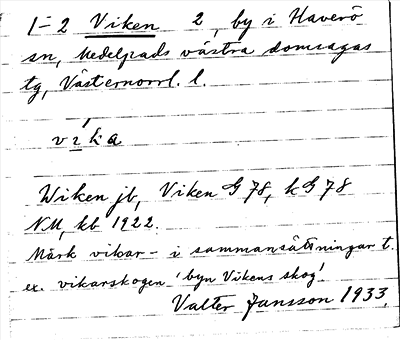 1–2 Viken 2, by i Haverö
sn, Medelpads västra domsagas
tg, Västernorrl. l.
víka
Wiken jb, Viken G 78, k G 78
NM, kb 1922.
Märk vikar- i sammansättningar t.
ex. vikarskogen 'byn Vikens skog'.
Valter Jansson 1933.